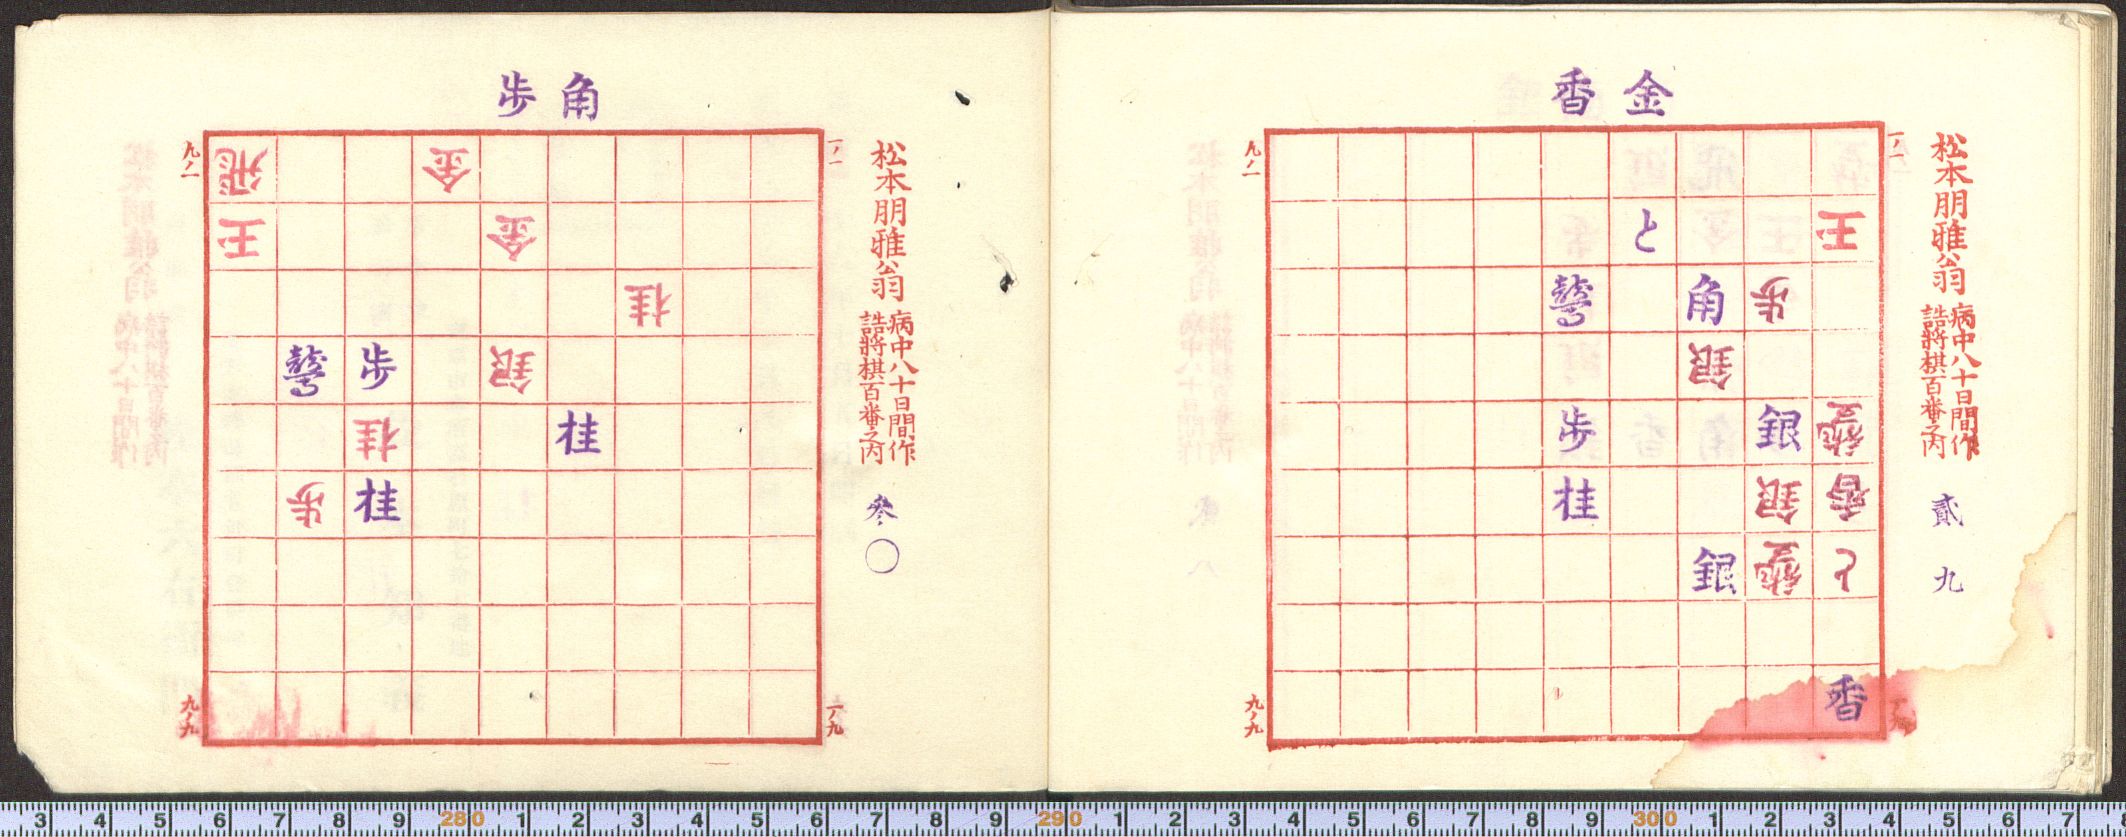 松本朋雅翁
病中八十日間作
詰將棋百番之内
貳九
金香
一ノ一
九ノ一
王と
歩角
銀
銀歩
香銀桂
と銀
香
九ノ九
松本朋雅翁
病中八十日間作
詰將棋百番之内
参〇
角歩
一ノ一
九ノ一
金飛
金王
桂
銀歩
桂桂
桂歩
一ノ九
九ノ九
3 4 5 6 7 8 9 280 1 2 3 4 5 6 7 8 9 290 1 2 3 4 5 6 7 8 9 300 1 2 3 4 5 6 7